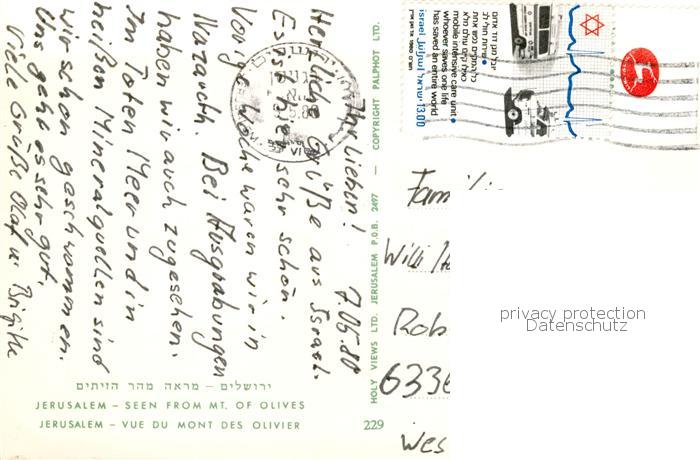 Ihr Lieben! 7.05.80
Herzliche Grüße aus Israel.
Es ist hier sehr schön.
Vorige Woche waren wir in
Nazareth. Bei Ausgrabungen
haben wir auch zugesehen.
Im Toten Meer und in
heißen Mineralquellen sind
wir schon geschwommen.
Uns geht es sehr gut.
Viele Grüße Olaf u. Brigitte
ירושלים – מראה מהר הזיתים
JERUSALEM – SEEN FROM MT. OF OLIVES
JERUSALEM – VUE DU MONT DES OLIVIER
229
HOLY VIEWS LTD. JERUSALEM P.O.B. 2497 — COPYRIGHT PALPHOT LTD.
mobile intensive care unit
whoever saves one life
has saved an entire world
israel ישראל 13.00
Famili
Willi
Rob
6336
Wes
privacy protection
Datenschutz